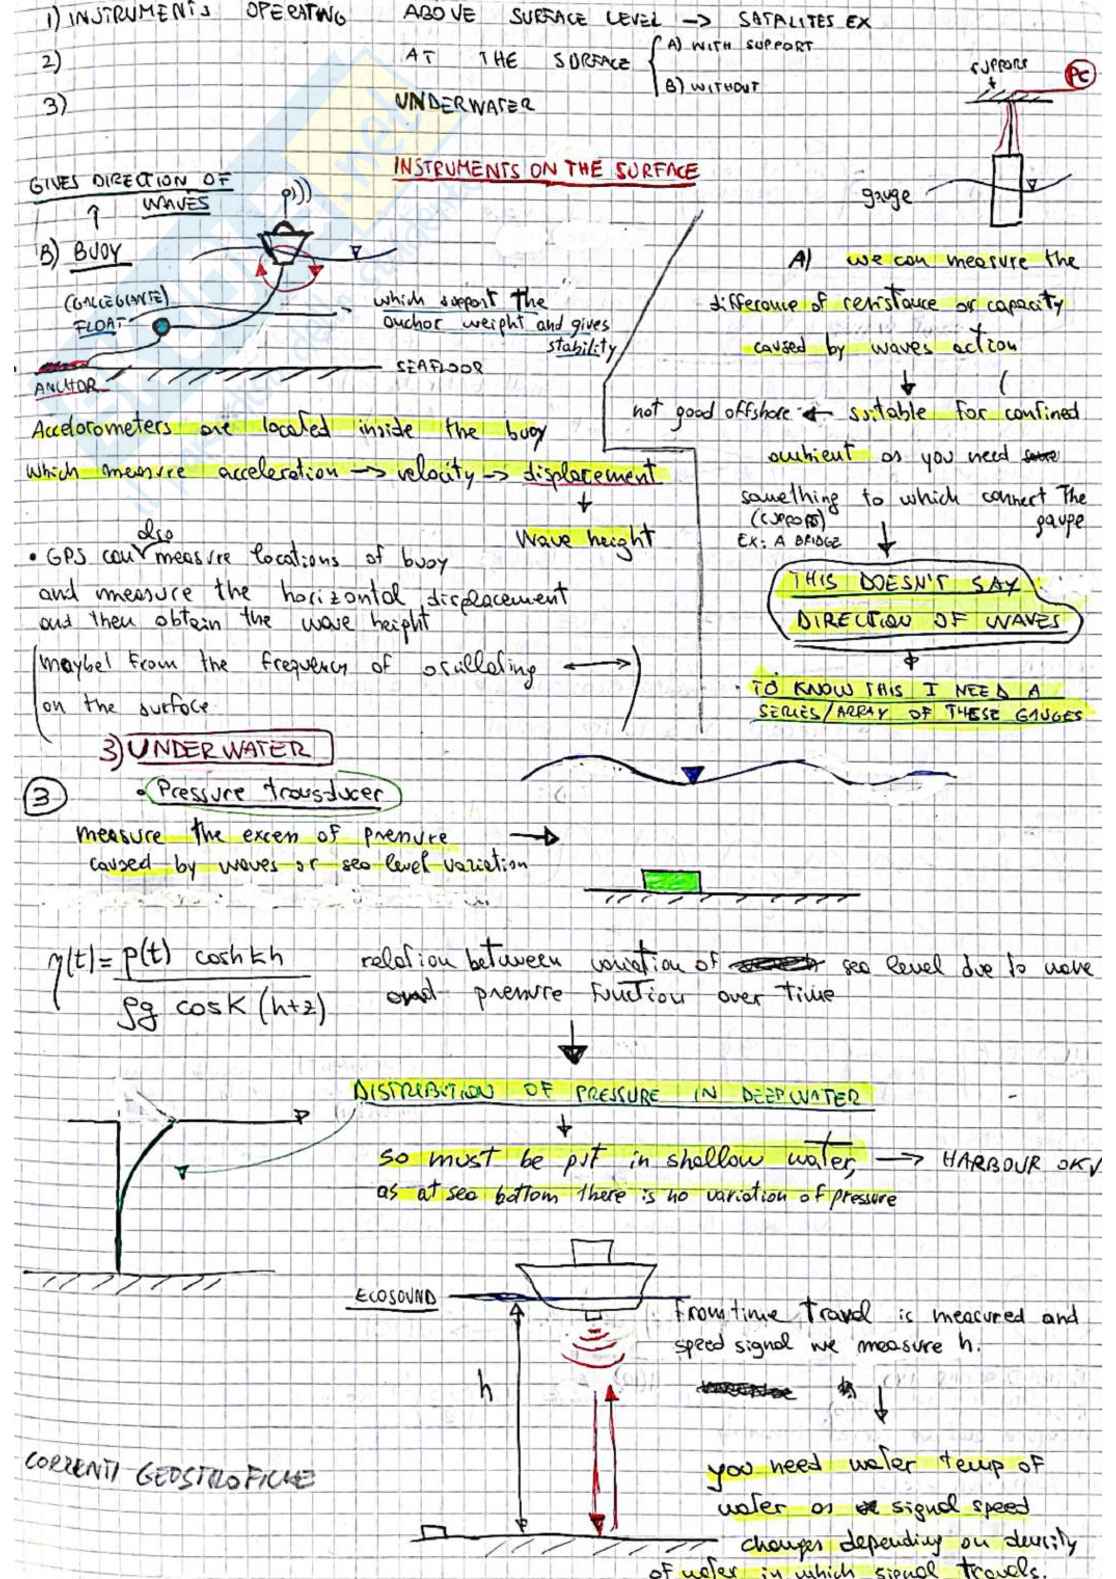 1) INSTRUMENTS OPERATING ABOVE SURFACE LEVEL → SATALITES EX
2) AT THE SURFACE
A) WITH SUPPORT
B) WITHOUT
3) UNDERWATER
SUPPORT
PC
gauge
INSTRUMENTS ON THE SURFACE
GIVES DIRECTION OF
WAVES
B) BUOY
(GALLEGIANTE)
FLOAT
ANCHOR
which support the
anchor weight and gives
stability
SEAFLOOR
Accelorometers are located inside the buoy
which measure acceleration → velocity → displacement
Wave height
also
• GPS can measure locations of buoy
and measure the horizontal displacement
and then obtain the wave height
(maybe! From the frequency of oscillating
on the surface
A) we can measure the
difference of resistance or capacity
caused by waves action
not good offshore ← suitable for confined
ambient as you need
something to which connect the
gauge
(SUPPORT)
EX: A BRIDGE
THIS DOESN'T SAY
DIRECTION OF WAVES
• TO KNOW THIS I NEED A
SERIES/ARRAY OF THESE GAUGES
3) UNDERWATER
3
• Pressure trasducer
measure the excess of pressure →
caused by waves or sea level variation
η(t) = p(t) cosh kh
ρg cosk (h+z)
relation between variation of sea level due to wave
and pressure function over time
DISTRIBUTION OF PRESSURE IN DEEPWATER
so must be put in shallow water, → HARBOUR OK √
as at sea bottom there is no variation of pressure
ECOSOUND
h
From time travel is measured and
speed signal we measure h.
you need water temp of
water as signal speed
changes depending on density
of water in which signal travels.
CORRENTI GEOSTROFICHE